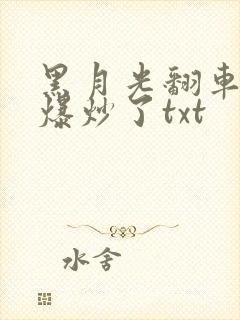 黑月光翻車
爆炒了txt
水舍